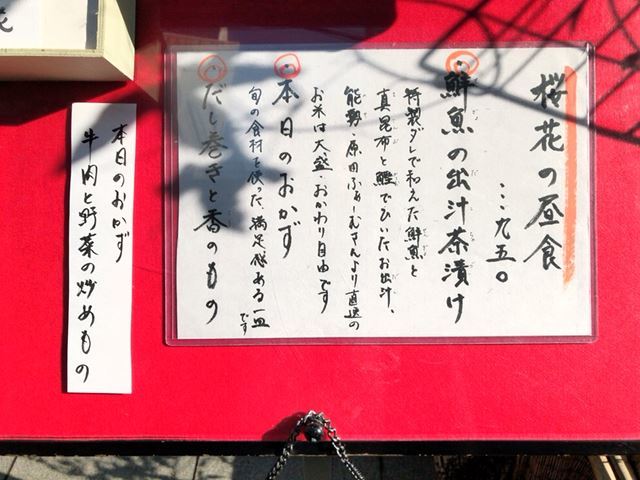 桜花の昼食
…九五〇
・鮮魚の出汁茶漬け
特製ダレで和えた鮮魚と
真昆布と鰹でひいたお出汁、
能勢・原田ふぁーむさんより直送の
お米は大盛・おかわり自由です
・本日のおかず
旬の食材を使った満足感ある一皿です
・だし巻きと香のもの
本日のおかず
牛肉と野菜の炒めもの